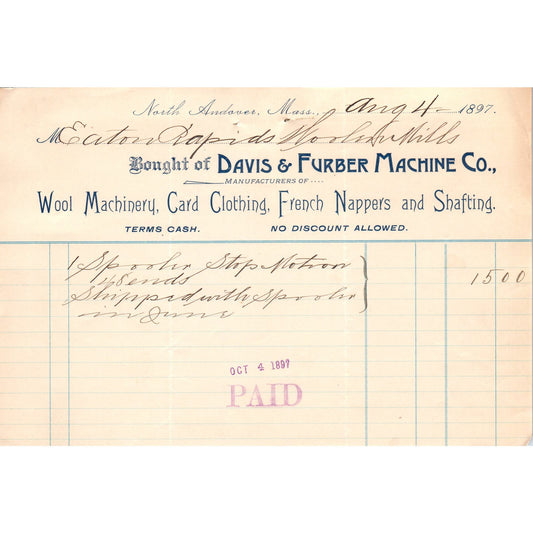 North Andover, Mass., Aug 4 1897.
M Eaton Rapids Woolen Mills
Bought of DAVIS & FURBER MACHINE CO.,
MANUFACTURERS OF....
Wool Machinery, Card Clothing, French Nappers and Shafting.
TERMS CASH. NO DISCOUNT ALLOWED.
1 Spooler Stop Motion
ends
Shipped with Spooler
in June
1500
OCT 4 1897
PAID